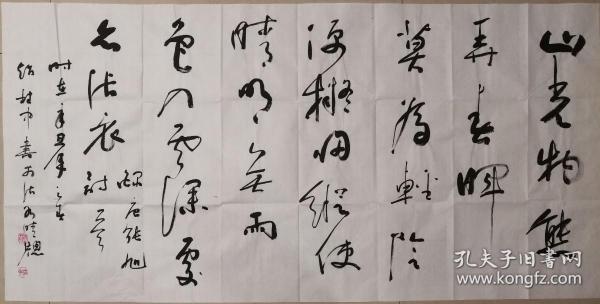 山光物態
弄春暉
莫為輕陰
便擬歸縱使
晴明無雨
色入雲深處
亦沾衣
錄唐張旭
詩一首
時在辛丑年之春
孔夫子旧书网
www.kongfz.com